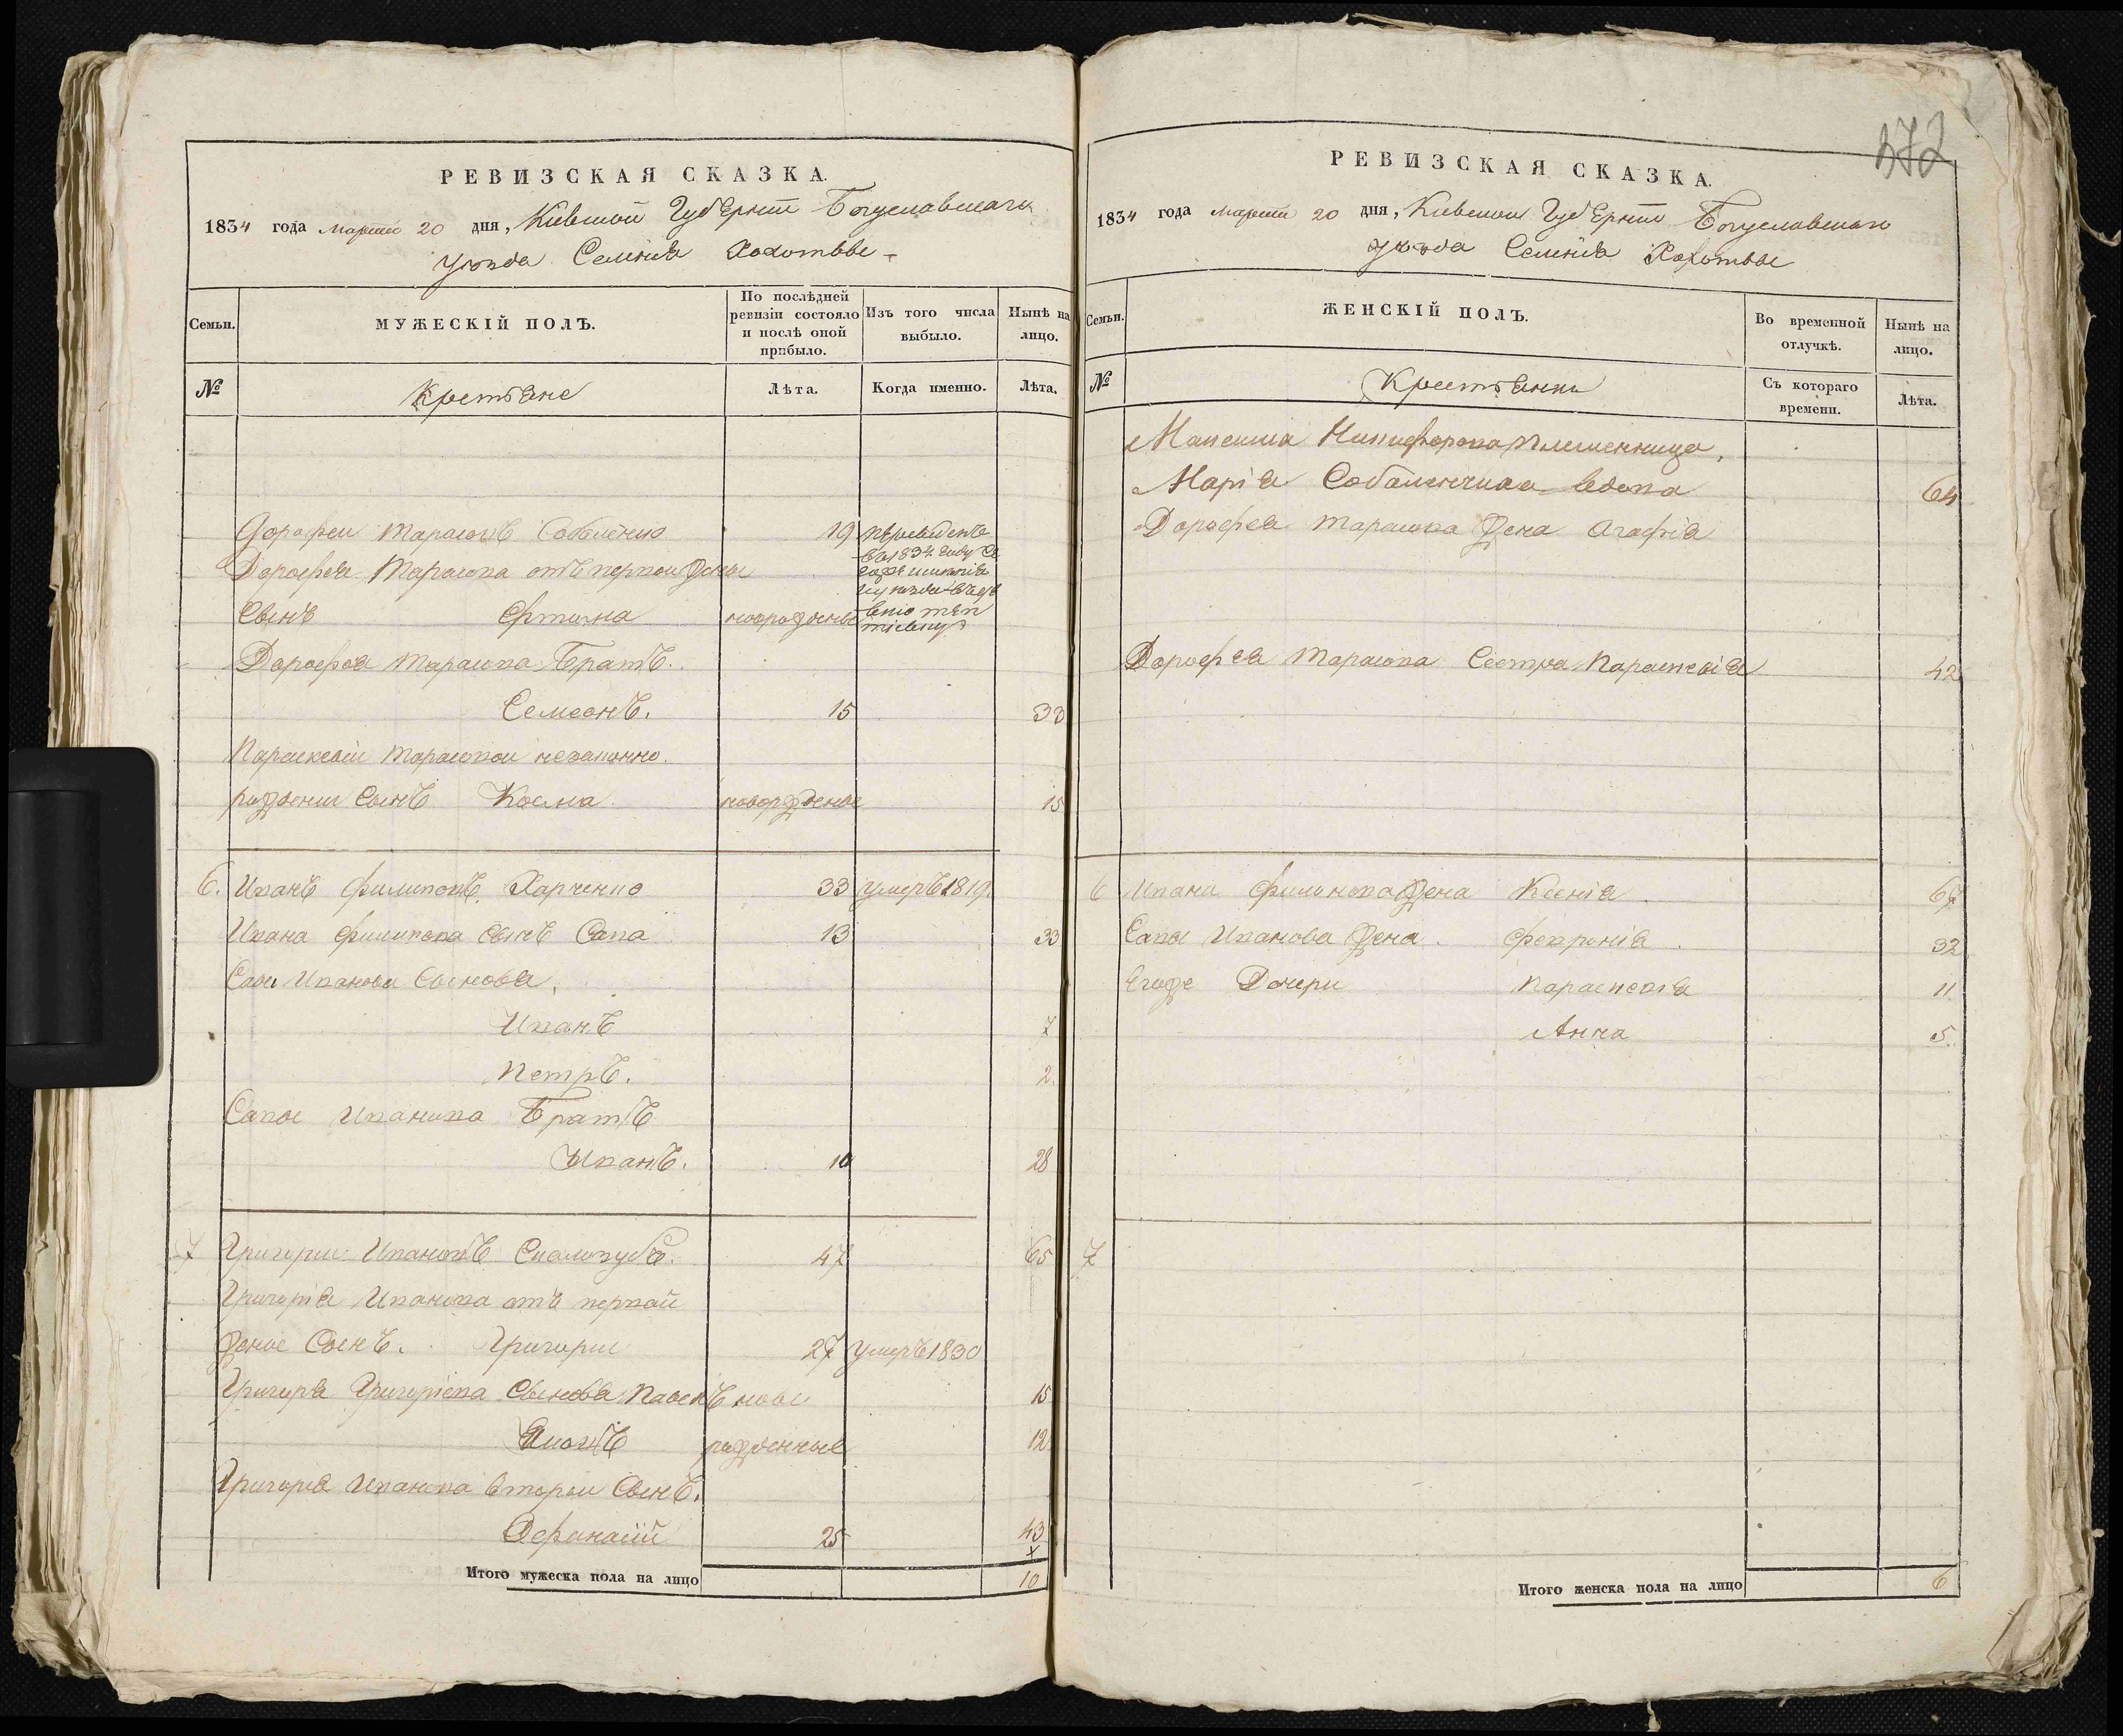 РЕВИЗСКАЯ СКАЗКА.
1834 года марта 20 дня, Киевской Губернии Богуславскаго
уѣзда Селенія Хохотвы
Семьи.
МУЖЕСКІЙ ПОЛЪ.
По послѣдней ревизіи состояло и послѣ оной прибыло.
Изъ того числа выбыло.
Нынѣ на лицо.
№
Крестьяне
Лѣта.
Когда именно.
Лѣта.
Дорофеи Тарасовъ Собаленко 19
въ 1834 году
Дорофея Тарасова отъ первои жены
Сынъ новорожденые
Дорофея Тарасова Братъ.
Семеонъ. 15 33
Параскевіи Тарасовои незаконно
рожденни Сынъ Косма новорожденые 15
6. Иванъ Филиповъ Харченко 33 умеръ 1819.
Ивана Филипова Сынъ Сава 13 33
Савы Иванова Сыновья,
Иванъ 7
Петръ. 2.
Савы Иванова Братъ
Иванъ. 10 28
7 Григории Ивановъ Скалозубъ. 47 65
Григорія Иванова отъ первой
жены Сынъ. Григории 27 умеръ 1830
Григорія Григоріева Сыновья ново 15
рожденные 12
Григорія Иванова второи Сынъ.
Афанасій 25 43
Итого мужеска пола на лицо 10
372
РЕВИЗСКАЯ СКАЗКА.
1834 года марта 20 дня, Киевской Губернии Богуславскаго
уѣзда Селенія Хохотвы
Семьи.
ЖЕНСКІЙ ПОЛЪ.
Во временной отлучкѣ.
Нынѣ на лицо.
№
Крестьянки
Съ котораго времени.
Лѣта.
Максима Никифорова племенница,
Марія вдова 64
Дорофея Тарасова Жена Агафія
Дорофея Тарасова Сестра Параскевія 42
6 Ивана Филипова Жена Ксенія 67
Савы Иванова Жена. Февронія 32
Егоже Дочери Параскевія 11
Анна 5.
7
Итого женска пола на лицо 6